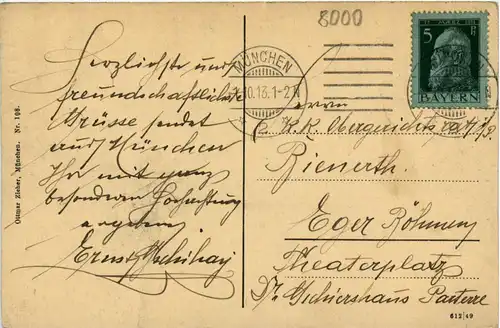 8000
5 Pf
BAYERN
MÜNCHEN
10.13.1-2 N
Herzlichste und
freundschaftlichste
Grüsse sendet
aus München
Ihr mit ganz
besonderer Hochachtung
ergebener
Ernst
Herrn
k. k. Obergerichtsrat i/P.
Bienerth.
Eger Böhmen
Theaterplatz
Dr. Parterre
Ottmar Zieher, München. Nr. 108.
612|49